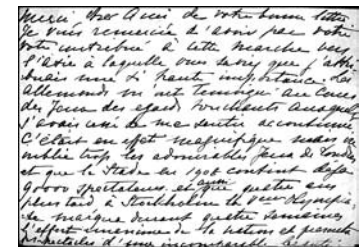 Merci cher Ami de votre bonne lettre
Je vous remercie d'avoir par votre
vote contribué à cette marche vers
l'Asie à laquelle vous savez que j'atta
chais une si haute importance. Les
Allemands m'ont témoigné au cours
des Jeux des égards touchants auxquels
j'avais cessé de me sentir accoutumé
C'était en effet magnifique mais on
oublie trop les admirables Jeux de Londres
et que le Stade en 1908 contint déjà
90000 spectateurs et que quatre ans
plus tard à Stockholm la Vème Olympiade
se marqua durant quatre semaines
l'effort unanime de la nation et permit
spectacles d'une incomparable